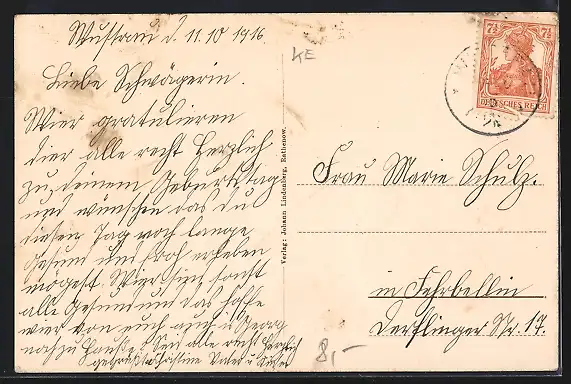 Wustrau d. 11.10 1916
KE
Liebe Schwägerin.
Wier gratulieren
dier alle recht Herzlich
zu deinem Geburtstag
und wünschen das du
diesen Tag noch lange
Gesund und froh erleben
mögest. Wier sind sonst
alle Gesund und das hoffe
wier von euch auch u Georg
noch zu Hause. Seid alle recht Herzlich
gegrüßt Vater u
Verlag: Johann Lindenberg, Rathenow.
7½ 7½
DEUTSCHES REICH
Frau Marie Schulz.
in Fehrbellin
Derflinger Str. 17.
8,-